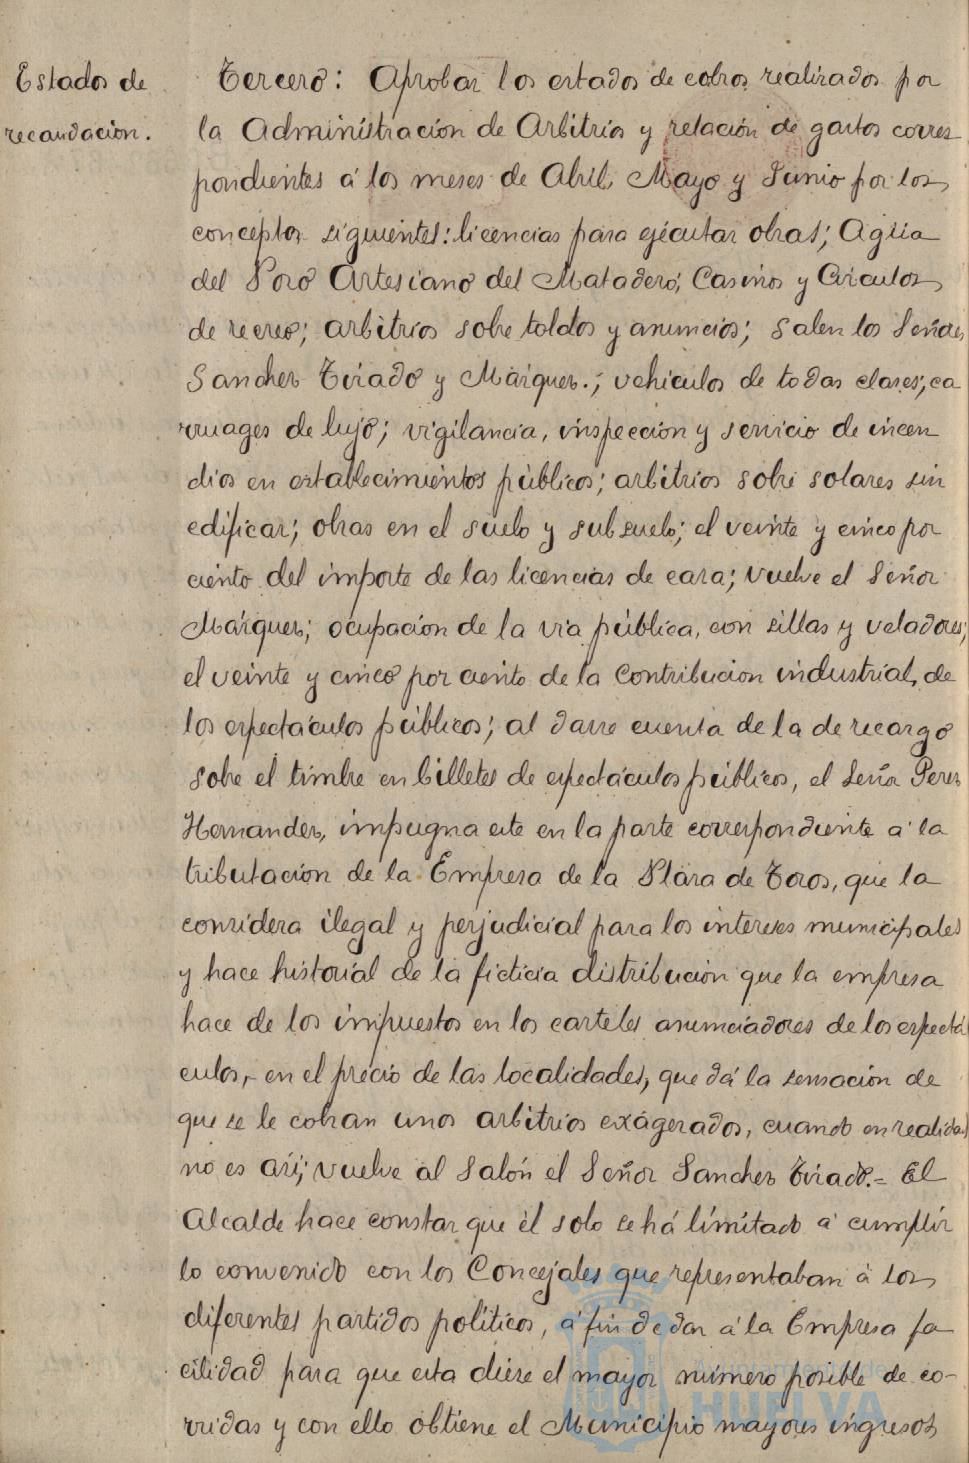 Estados de
recaudación.
Tercero: Aprobar los estados de cobros realizados por
la Administración de Arbitrios y relación de gastos corres
pondientes á los meses de Abril, Mayo y Junio por los
conceptos siguientes: licencias para ejecutar obras; Agua
del Pozo Artesiano del Matadero; Casinos y Circulos
de recreo; arbitrios sobre toldos y anuncios; salen los Señores
Sanchez Tirado y Márquez.; vehículos de todas clases; ca
rruages de lujo; vigilancia, inspección y servicio de incen
dios en establecimientos públicos; arbitrios sobre solares sin
edificar; obras en el suelo y subsuelo; el veinte y cinco por
ciento del importe de las licencias de caza; vuelve el Señor
Márquez; ocupación de la via pública, con sillas y veladores;
el veinte y cinco por ciento de la contribucion industrial, de
los espectáculos públicos; al darse cuenta de la de recargo
sobre el timbre en billetes de espectáculos públicos, el Señor Perez
Hernandez, impugna este en la parte correspondiente á la
tributación de la Empresa de la Plaza de Toros, que la
considera ilegal y perjudicial para los intereses municipales
y hace historial de la ficticia distribución que la empresa
hace de los impuestos en los carteles anunciadores de los espectá
culos, en el precio de las localidades, que dá la sensación de
que se le cobran unos arbitrios exagerados, cuando en realidad
no es así; vuelve al Salón el Señor Sanchez Tirado.= El
Alcalde hace constar que él solo se há limitado á cumplir
lo convenido con los Concejales que representaban á los
diferentes partidos políticos, á fin de dar á la Empresa fa
cilidad para que esta diese el mayor número posible de co-
rridas y con ello obtiene el Municipio mayores ingresos
Ayuntamiento de
HUELVA